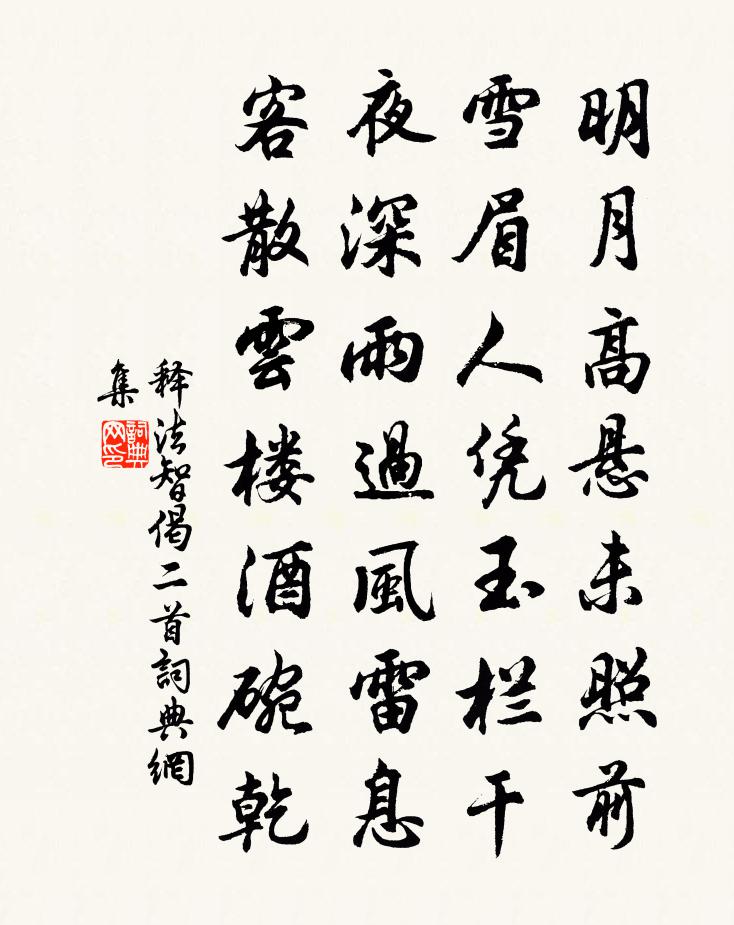 明月高悬未照前
雪眉人凭玉栏干
夜深雨過風雷息
客散雲楼酒碗乾
释法智偈二首詞典網
集
詞典
网印